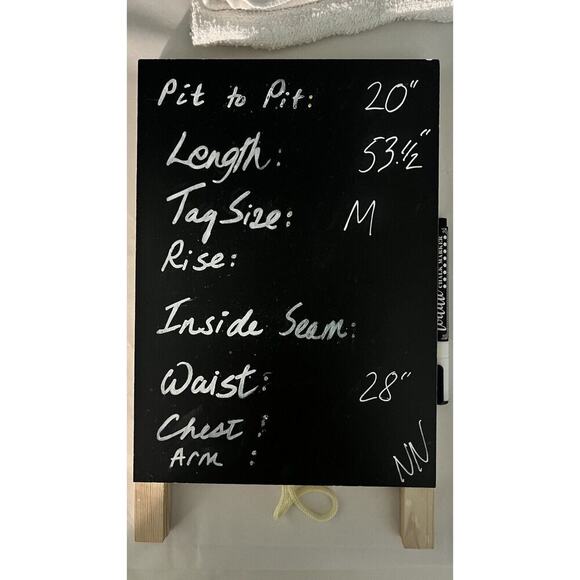 Pit to Pit: 20"
Length: 53.½"
Tag Size: M
Rise:
Inside Seam:
Waist: 28"
Chest :
Arm :
NN
CHALK MARKER